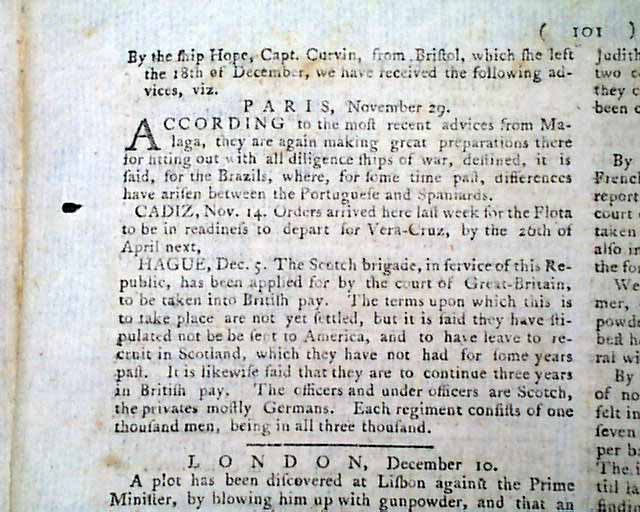 ( 101 )
By the ſhip Hope, Capt. Curvin, from Briſtol, which ſhe left
the 18th of December, we have received the following ad-
vices, viz.
PARIS, November 29.
ACCORDING to the moſt recent advices from Ma-
laga, they are again making great preparations there
for fitting out with all diligence ſhips of war, deſtined, it is
ſaid, for the Brazils, where, for ſome time paſt, differences
have ariſen between the Portugueſe and Spaniards.
CADIZ, Nov. 14. Orders arrived here laſt week for the Flota
to be in readineſs to depart for Vera-Cruz, by the 26th of
April next,
HAGUE, Dec. 5. The Scotch brigade, in ſervice of this Re-
public, has been applied for by the court of Great-Britain,
to be taken into Britiſh pay. The terms upon which this is
to take place are not yet ſettled, but it is ſaid they have ſti-
pulated not be be ſent to America, and to have leave to re-
cruit in Scotland, which they have not had for ſome years
paſt. It is likewiſe ſaid that they are to continue three years
in Britiſh pay. The officers and under officers are Scotch,
the privates moſtly Germans. Each regiment conſiſts of one
thouſand men, being in all three thouſand.
LONDON, December 10.
A plot has been diſcovered at Liſbon againſt the Prime
Miniſter, by blowing him up with gunpowder, and that an
Judith
two
they c
been
By
French
report
court
taken
alſo in
the fo
We
mer,
powde
beſt h
ral wi
By
of no
felt in
ſeven
per b
The i
tial
finding